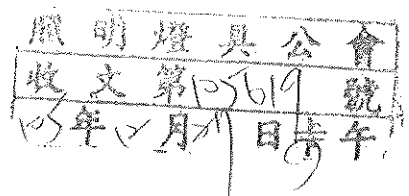 照明燈具公會
收文第105619號
105年12月 日 午